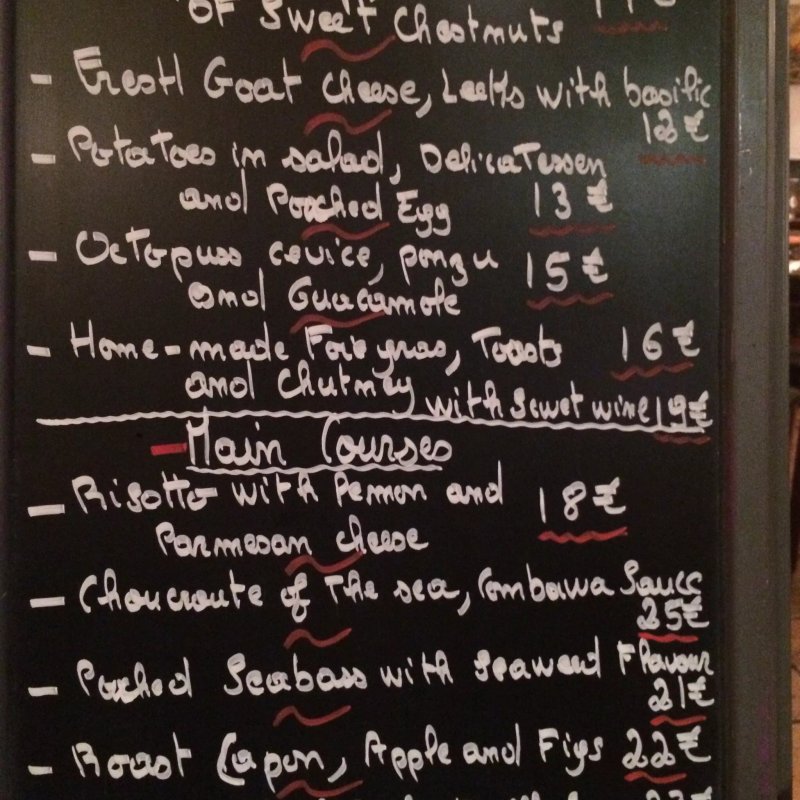 OF Sweet Chestnuts
- Fresh Goat cheese, Leeks with basilic
12€
- Potatoes in salad, Delicatessen
and Poached Egg 13€
- Octopuss cevice, ponzu 15€
and Guacamole
- Home-made Foie gras, Toasts 16€
and chutney with sweet wine 19€
- Main Courses
- Risotto with Pemon and 18€
Parmesan cheese
- Choucroute of The sea, Combawa Sauce
25€
- Poached Seabass with Seaweed Flavour
21€
- Roast Capon, Apple and Figs 22€